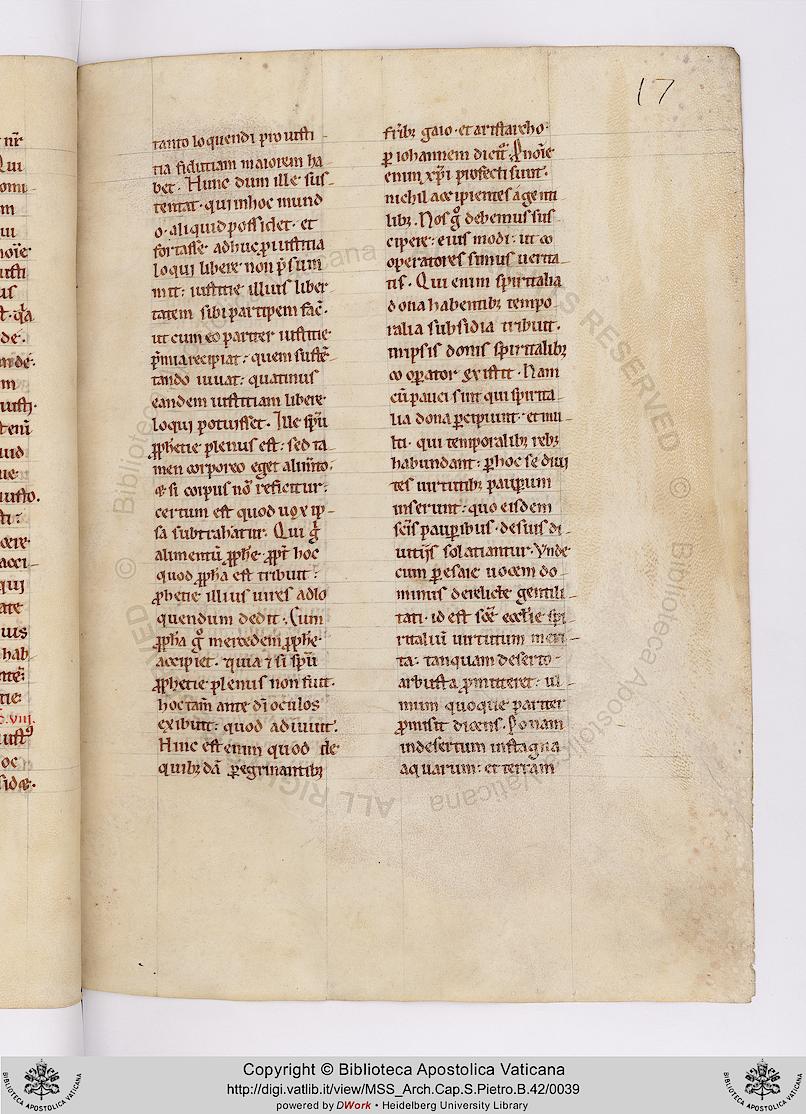 17
tanto loquendi pro iusti-
tia fidutiam maiorem ha-
bet. Hunc dum ille sus-
tentat. qui in hoc mund
o. aliquid possidet. et
fortasse adhuc p iustitia
loqui libere non p̄sum
mit: iustitie illius liber
tatem sibi participem fac̄.
ut cum eo pariter iustitie
p̄mia recipiat: quem sustē-
tando iuuat: quatinus
eandem iustitiam libere
loqui potuisset. Ille sp̄u
ꝓphetie plenus est: sed ta-
men corporeo eget alim̄to.
& si corpus nō reficitur:
certum est quod uox ip-
sa subtrahatur. Qui g̊
alimentū ꝓphe. ꝓpt̄ hoc
quod ꝓpha est tribuit:
ꝓhetie illius uires ad lo
quendum dedit. Cum
ꝓpha g̊ mercedem ꝓphe
accipiet. quia ⁊ si sp̄u
ꝓphetie plenus non fuit.
hoc tam̄ ante dī oculos
exibuit: quod adiuuit.
Hinc est enim quod de
quibꝫ dā peregrinantibꝫ
fr̄ibꝫ gaio. et aristarcho.
p iohannem dicit̄. P noīe
enim xp̄i profecti sunt.
nichil accipientes a genti
libꝫ. Nos g̊ debemus sus
cipere: eius modi: ut co
operatores simus uerita
tis. Qui enim spiritalia
dona habentibꝫ tempo
ralia subsidia tribuit.
in ipsis donis spiritalibꝫ
co operator existit. Nam
cū pauci sint qui spirita
lia dona percipiunt. et mu
lti. qui temporalibꝫ rebꝫ
habundant: p hoc se diui
tes uirtutibꝫ pauperum
inserunt. quo eisdem
sc̄is pauperibus. de suis di
uitijs solatiantur. Vnde
cum p esaie uocem do-
minus derelicte gentili
tati. id est sc̄e eccl̄ie spi
ritaliū uirtutum meri-
ta: tanquam deserto-
arbusta promitteret: ul
mum quoque pariter
promisit dicens. Ponam
in desertum in stagna
aquarum: et terram
nr̄
Qui
Copyright © Biblioteca Apostolica Vaticana
http://digi.vatlib.it/view/MSS_Arch.Cap.S.Pietro.B.42/0039
powered by DWork • Heidelberg University Library
BIBLIOTECA APOSTOLICA VATICANA
BIBLIOTECA APOSTOLICA VATICANA